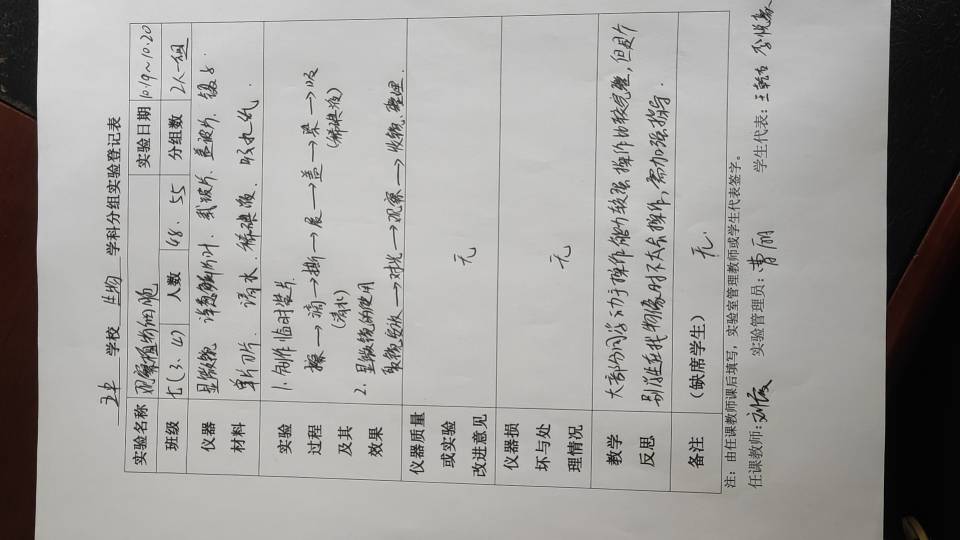 五中 学校 生物 学科分组实验登记表
实验名称 观察植物细胞 实验日期 10.19~10.20
班级 七(3、4) 人数 48、55 分组数 2人一组
仪器 显微镜、解剖针、载玻片、盖玻片、镊子
材料 单刀片、清水、稀碘液、吸水纸
实验 1. 制作临时装片
过程 擦→滴→撕→展→盖→染→吸
(清水) (稀碘液)
及其 2. 显微镜的使用
效果 取镜安放→对光→观察→收镜、整理.
仪器质量
或实验 无
改进意见
仪器损
坏与处 无
理情况
教学 大部分同学动手操作能力较强,操作比较完整,但是个
反思 别学生在找物像时不太会操作,需加强指导.
备注 (缺席学生) 无.
注:由任课教师课后填写,实验室管理教师或学生代表签字。
任课教师: 实验管理员:曹丽 学生代表: